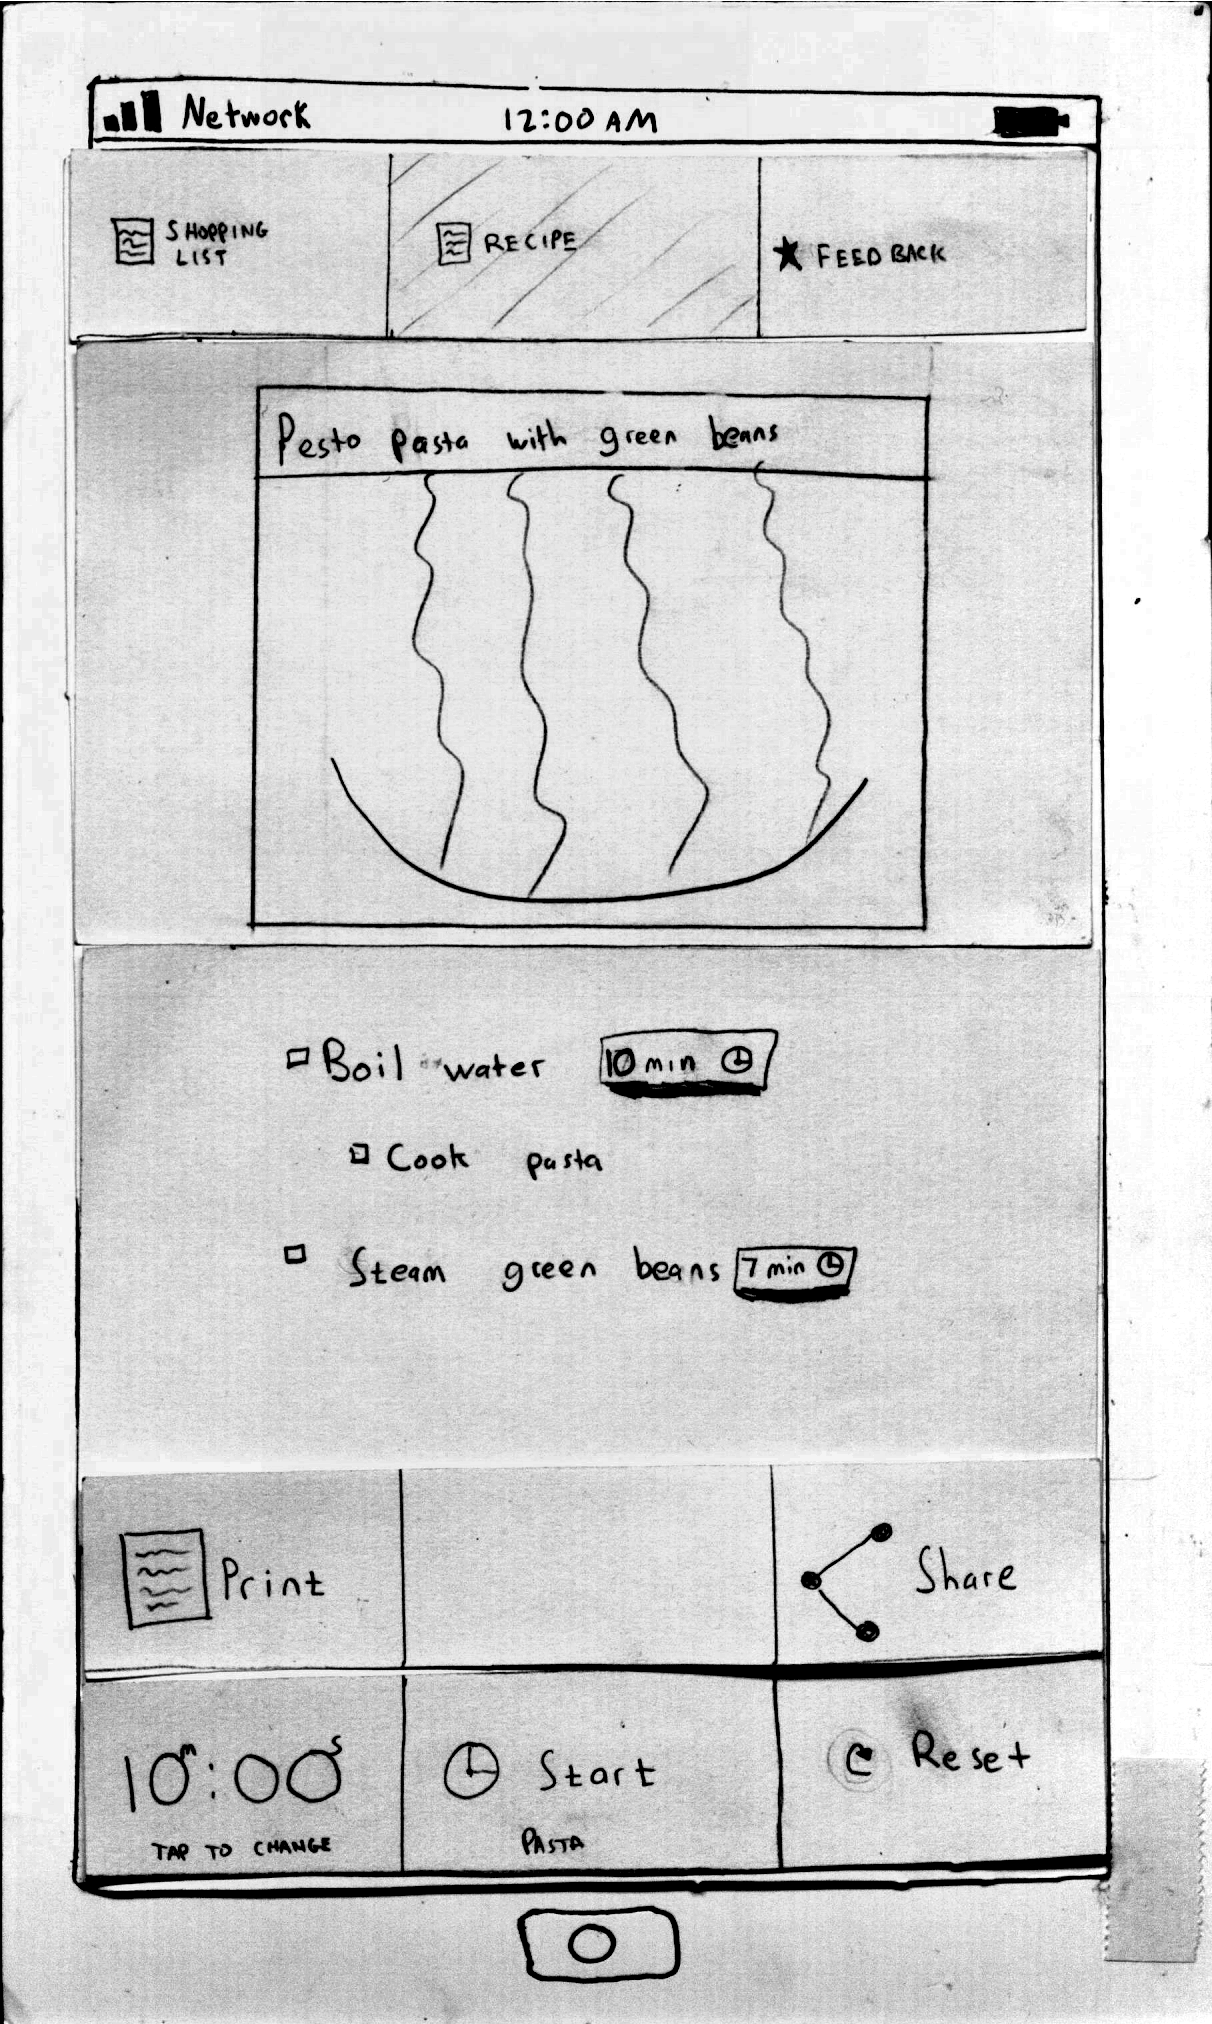 Network 12:00 AM
SHOPPING
LIST
RECIPE
FEEDBACK
Pesto pasta with green beans
Boil water 10 min
Cook pasta
Steam green beans 7 min
Print
Share
10m:00s
TAP TO CHANGE
Start
PASTA
Reset